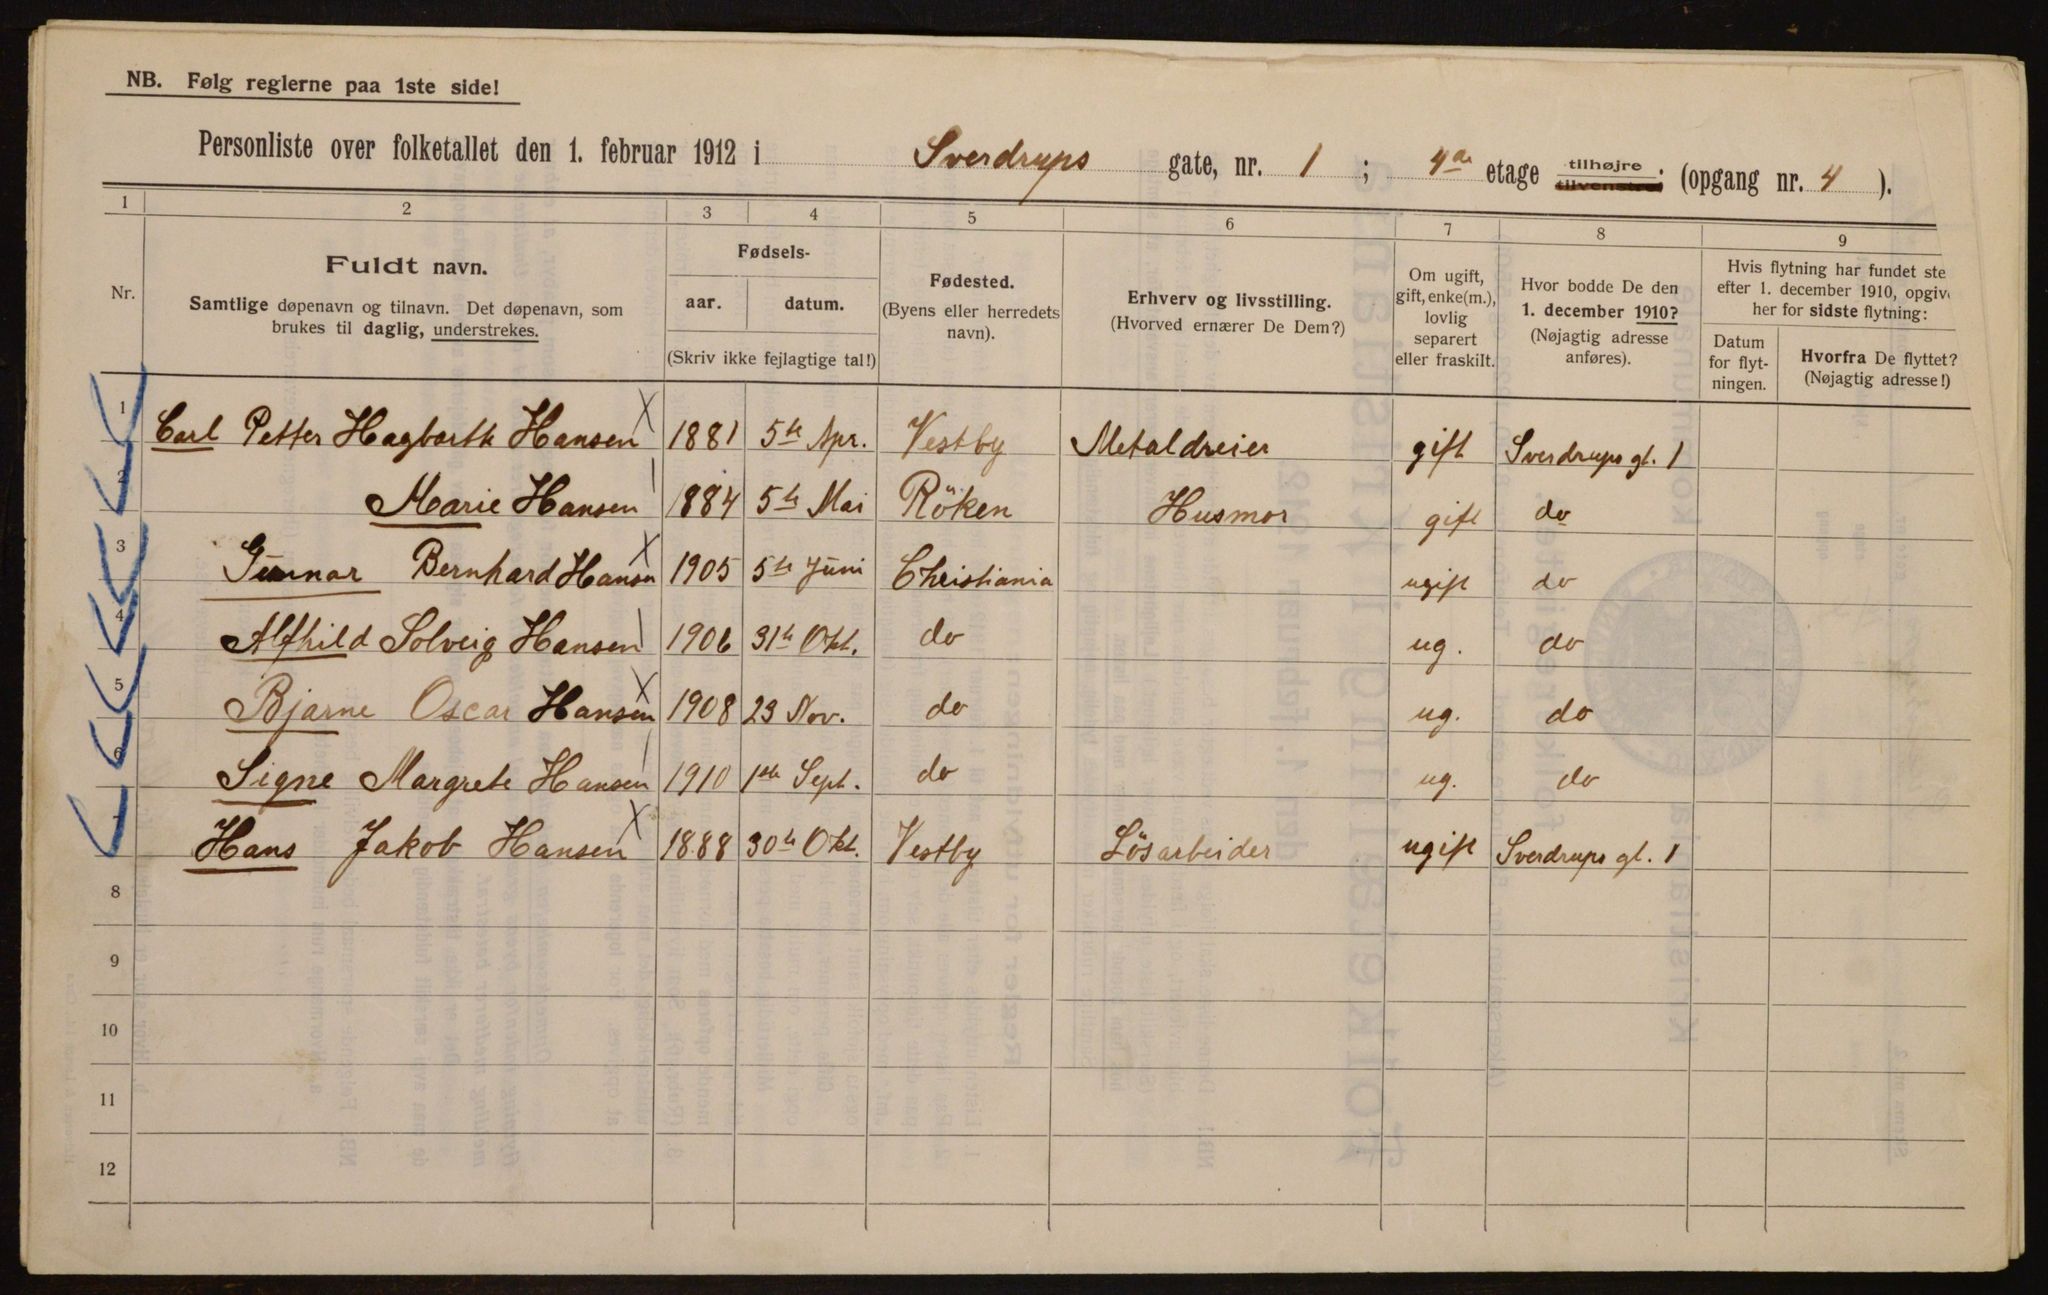 NB. Følg reglerne paa 1ste side!
Personliste over folketallet den 1. februar 1912 i Sverdrups gate, nr. 1 ; 4de etage tilhøjre. tilvenstre. (opgang nr. 4 ).
1 2 3 4 5 6 7 8 9
Nr.
Fuldt navn.
Samtlige døpenavn og tilnavn. Det døpenavn, som
brukes til daglig, understrekes.
Fødsels-
aar. datum.
(Skriv ikke fejlagtige tal!)
Fødested.
(Byens eller herredets
navn).
Erhverv og livsstilling.
(Hvorved ernærer De Dem?)
Om ugift,
gift, enke(m.),
lovlig
separert
eller fraskilt.
Hvor bodde De den
1. december 1910?
(Nøjagtig adresse
anføres).
Hvis flytning har fundet ste
efter 1. december 1910, opgiv
her for sidste flytning:
Datum
for flyt-
ningen.
Hvorfra De flyttet?
(Nøjagtig adresse!)
1 Carl Petter Hagbarth Hansen 1881 5te Apr. Vestby Metaldreier gift Sverdrups gt. 1
2 Marie Hansen 1884 5te Mai Röken Husmor gift do
3 Gunnar Bernhard Hansen 1905 5te Juni Christiania ugift do
4 Alfhild Solveig Hansen 1906 31te Okt. do ug. do
5 Bjarne Oscar Hansen 1908 23 Nov. do ug. do
6 Signe Margrete Hansen 1910 1ste Sept. do ug. do
7 Hans Jakob Hansen 1888 30te Okt. Vestby Lösarbeider ugift Sverdrups gt. 1
8
9
10
11
12